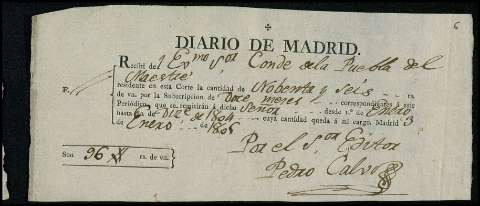 6
DIARIO DE MADRID.
Recibí del Exmo Sor Conde de la Puebla del
Maestre
residente en esta Corte la cantidad de Nobenta y seis rs.
de vn. por la Subscripcion de Doce meses correspondientes á este
Periódico que se regístrará á dicho Señor desde 1.º de Enero
hasta fin de Dize. de 1804 cuya cantidad queda á mi cargo. Madrid 3
de Enero de 180
Por el Sor Editor
Son 96 rs. de vn.
Pedro Calvo